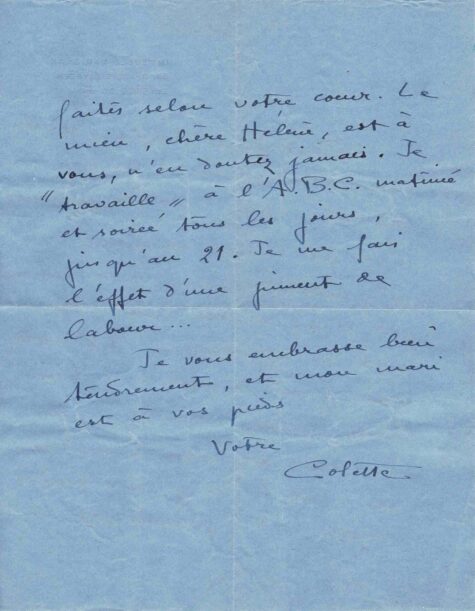 faites selon votre coeur. Le
mien, chère Hélène, est à
vous, n'en doutez jamais. Je
"travaille" à l'A.B.C. matinée
et soirée tous les jours,
jusqu'au 21. Je me fais
l'effet d'une jument de
labour...
Je vous embrasse bien
tendrement, et mon mari
est à vos pieds
Votre
Colette